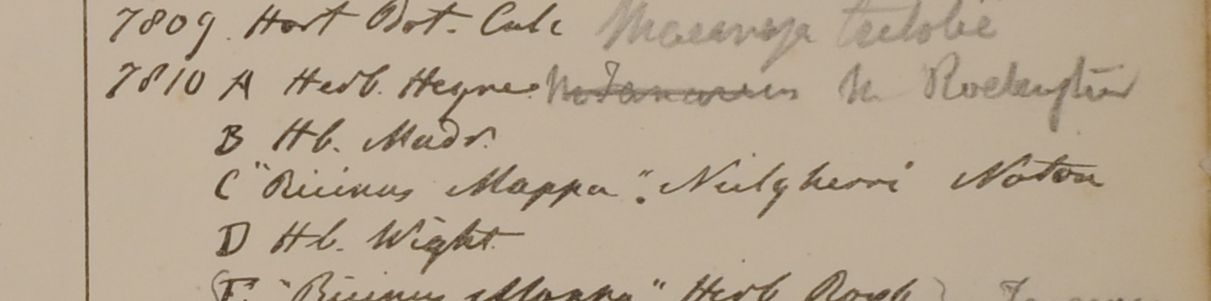 7809. Hort Bot. Calc Macaranga triloba
7810 A Herb. Heyne M Tanarius M
B Hb. Madr.
C "Ricinus Mappa". Neilgherri Noton
D Hb. Wight
E "Ricinus Mappa" Herb Roxb